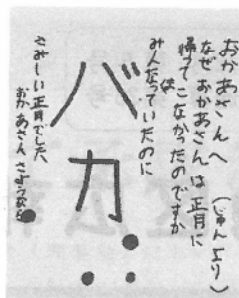 おかあさんへ （じゅんより）
なぜ おかあさんは 正月に
帰って こなかったのですか
みんなは まっていたのに
バカ
さみしい正月でした、
おかあさん さようなら